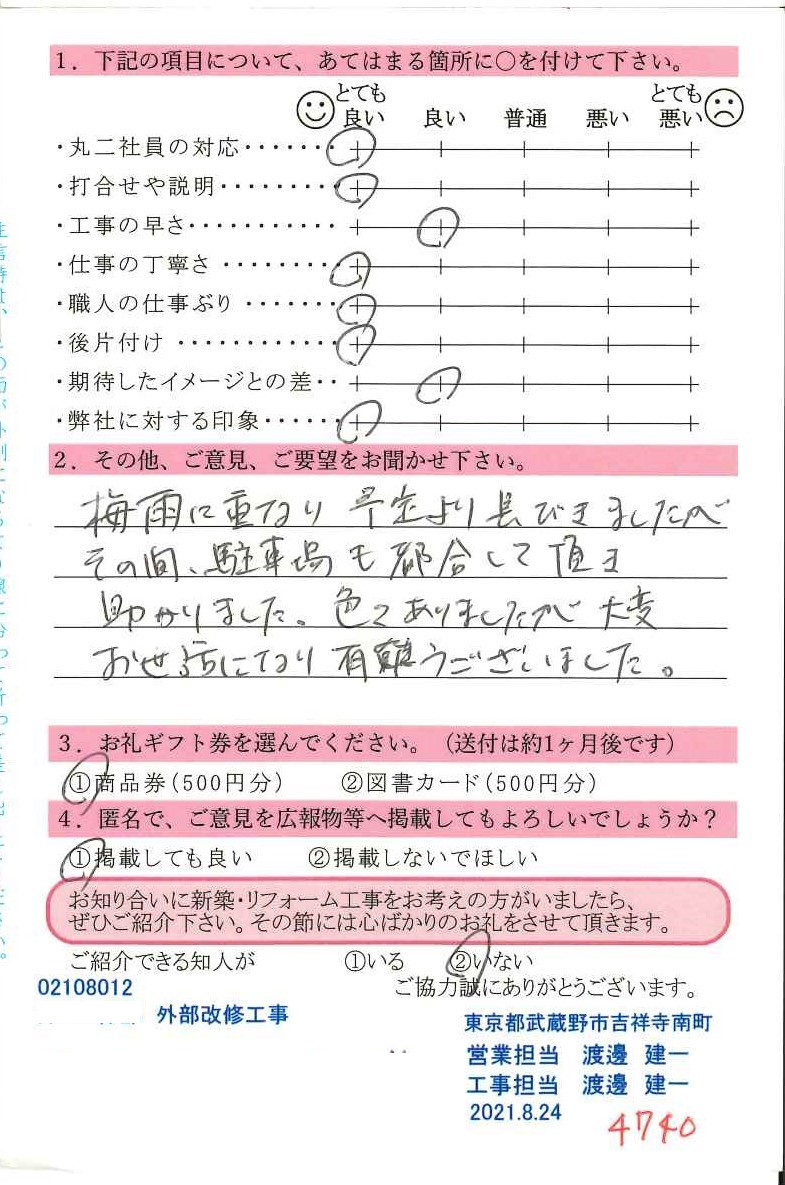 1．下記の項目について、あてはまる箇所に○を付けて下さい。
とても良い 良い 普通 悪い とても悪い
・丸二社員の対応・・・・・・・
・打合せや説明・・・・・・・・・
・工事の早さ・・・・・・・・・・・
・仕事の丁寧さ・・・・・・・・
・職人の仕事ぶり・・・・・・・
・後片付け・・・・・・・・・・・・
・期待したイメージとの差・・
・弊社に対する印象・・・・・・
2．その他、ご意見、ご要望をお聞かせ下さい。
梅雨に重なり 予定より長びきましたが
その間、駐車場も都合して頂き
助かりました。色々ありましたが 大変
お世話になり 有難うございました。
3．お礼ギフト券を選んでください。（送付は約1ヶ月後です）
①商品券（500円分） ②図書カード（500円分）
4．匿名で、ご意見を広報物等へ掲載してもよろしいでしょうか？
①掲載しても良い ②掲載しないでほしい
お知り合いに新築・リフォーム工事をお考えの方がいましたら、
ぜひご紹介下さい。その節には心ばかりのお礼をさせて頂きます。
ご紹介できる知人が ①いる ②いない
ご協力誠にありがとうございます。
02108012
外部改修工事
東京都武蔵野市吉祥寺南町
営業担当 渡邊 建一
工事担当 渡邊 建一
2021.8.24
4740